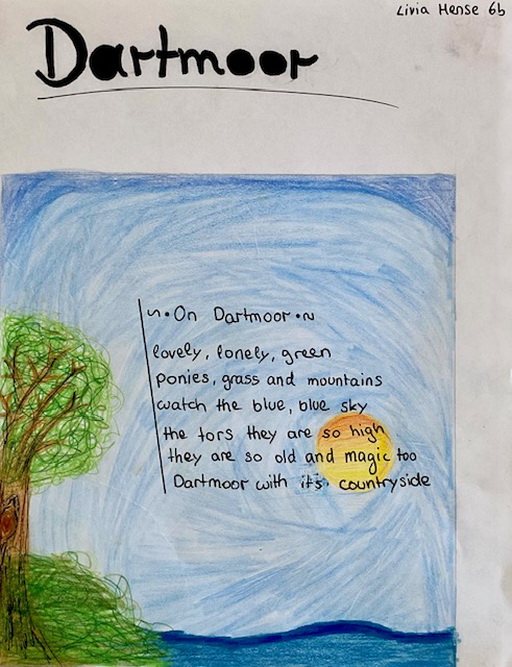 Livia Hense 6b
Dartmoor
On Dartmoor
lovely, lonely, green
ponies, grass and mountains
watch the blue, blue sky
the tors they are so high
they are so old and magic too
Dartmoor with its countryside